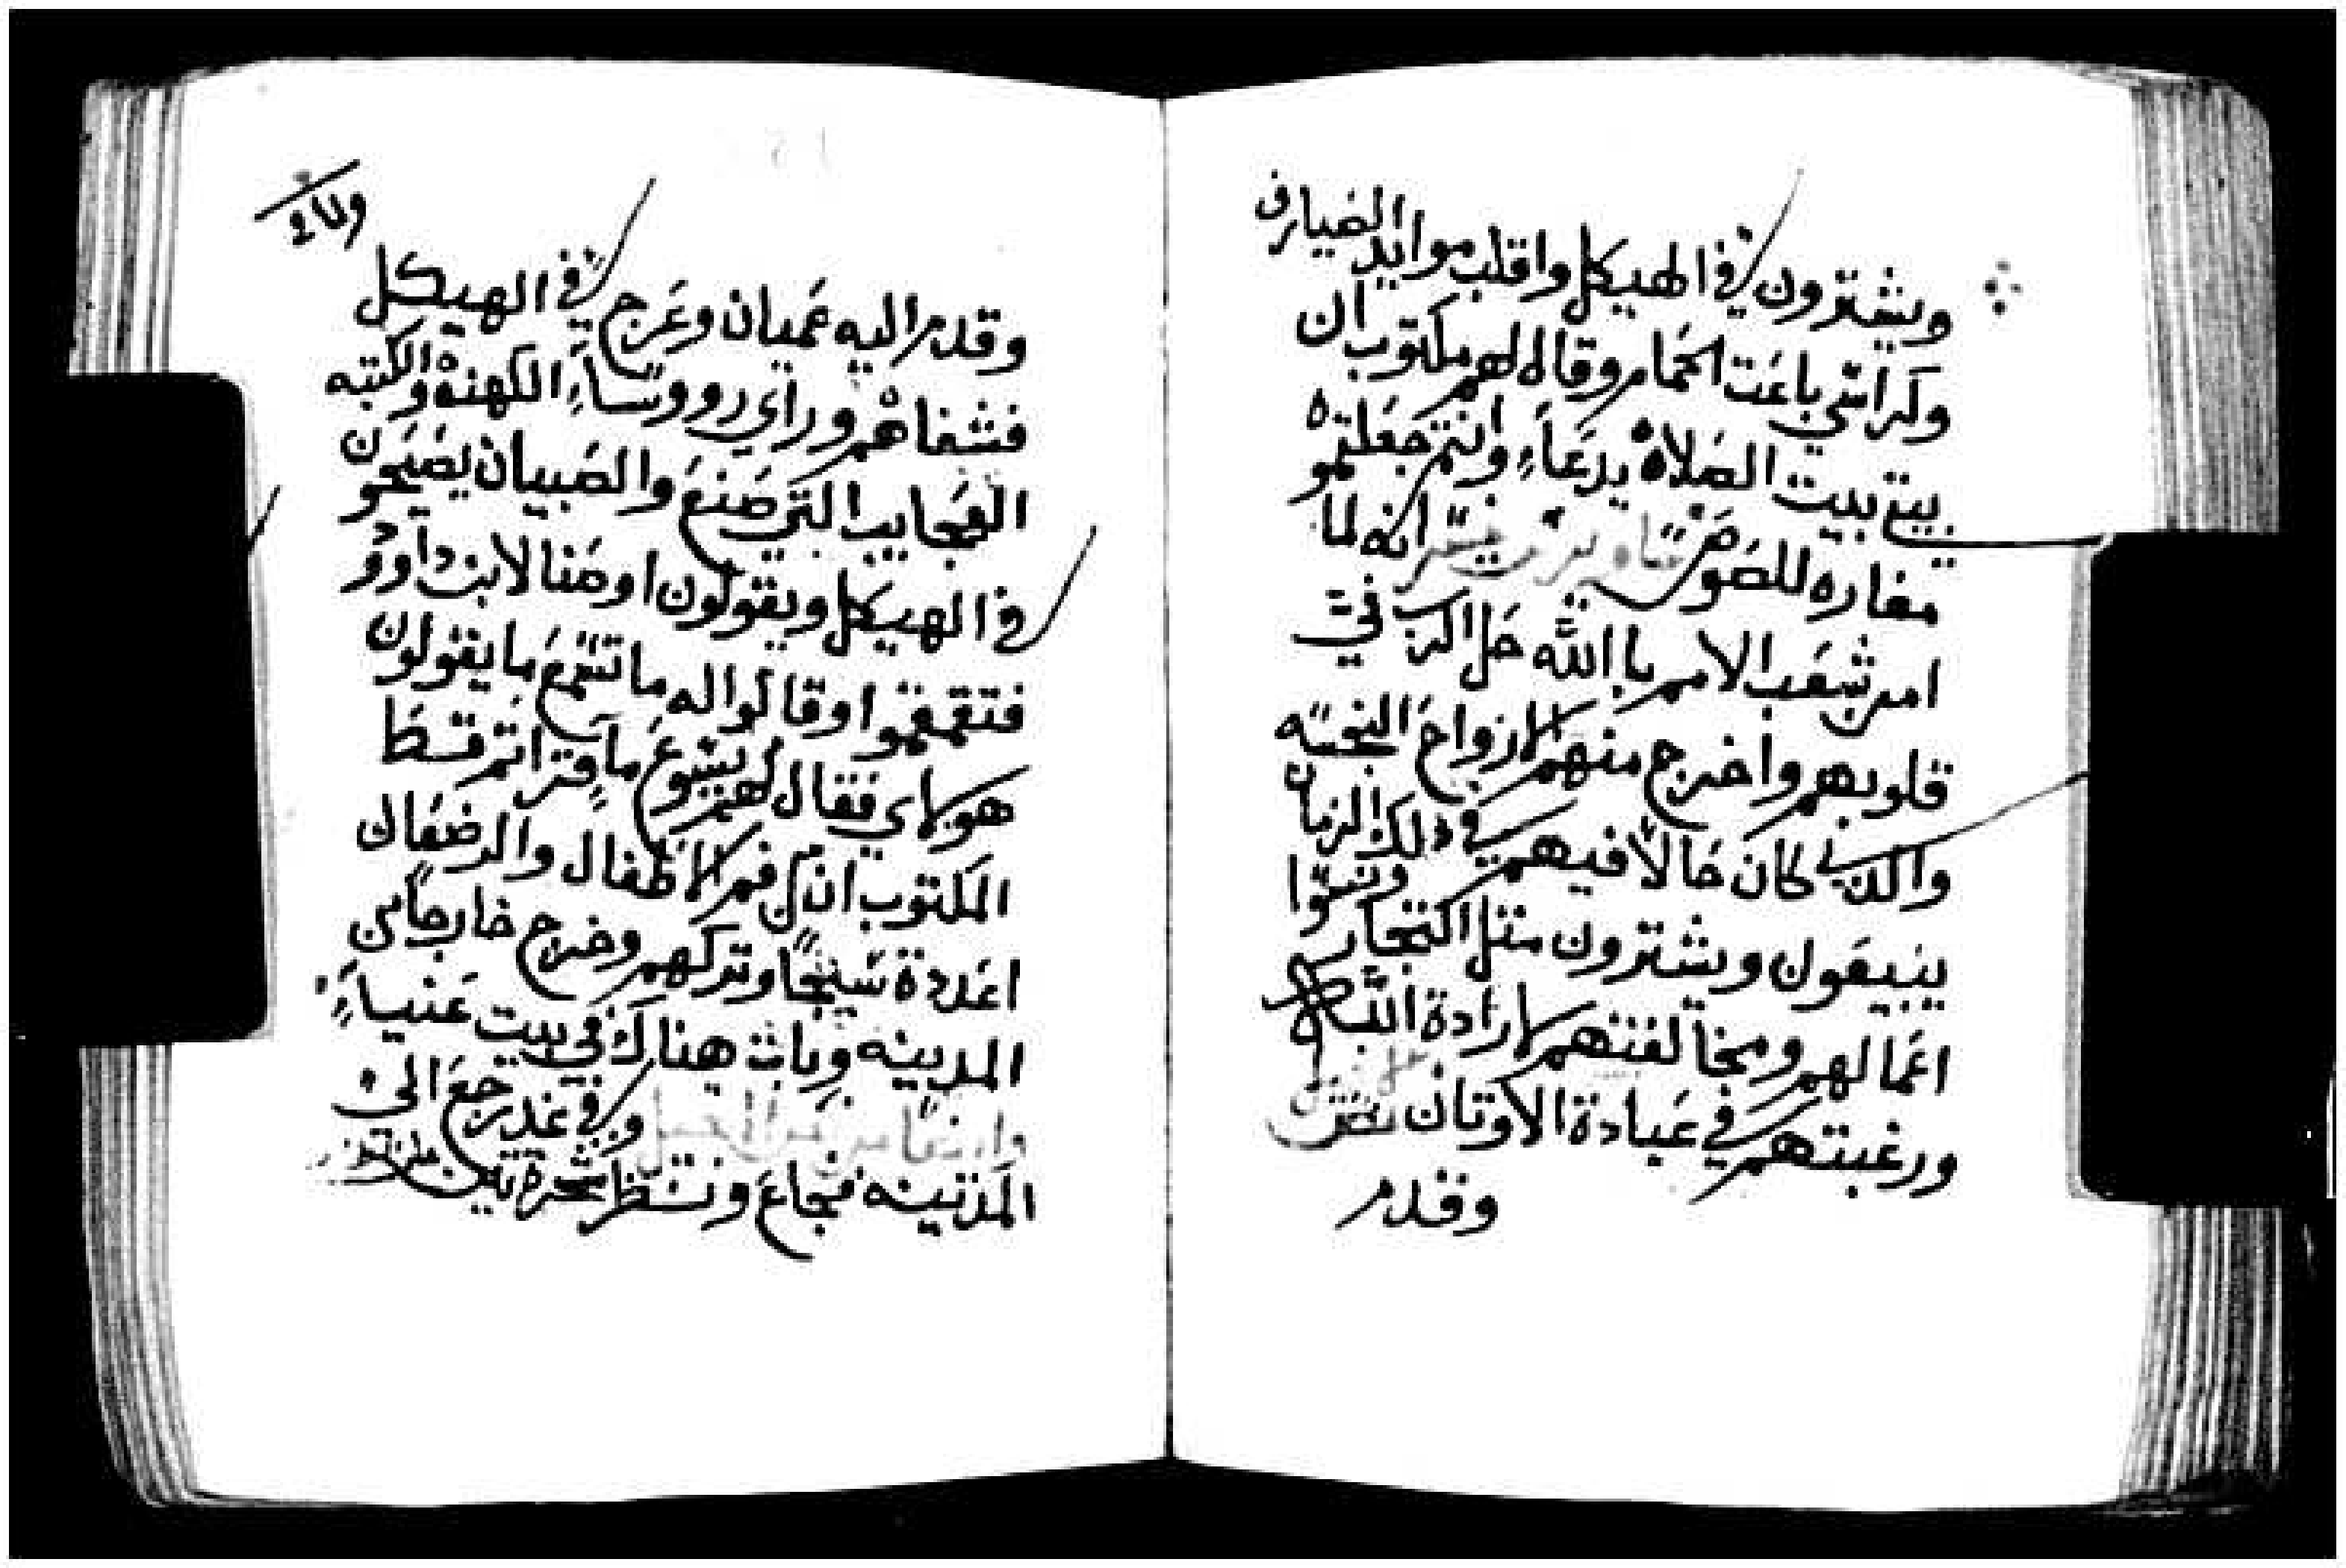 ويشترون في الهيكل واقلب موايد الصيارف
وكراسي باعت الحمام وقال لهم مكتوب ان
بيتي بيت الصلاه يدعاء وانتم جعلتموه
مغاره للصوص انه لما
امن شعب الامم باالله حل الرب في
قلوبهم واخرج منهم الارواح النجسه
والذي كان حالاً فيهم في ذلك الزمان
يبيعون ويشترون متل التجار
اعمالهم ومخالفتهم لارادة الله
ورغبتهم في عبادة الاوتان
وقدم
وقدم اليه عميان وعرج في الهيكل
فشفاهم وراي رووساء الكهنه والكتبه
العجايب التي صنع والصبيان يصيحون
في الهيكل ويقولون اوصنا لابن داوود
فتقمقموا وقالوا له ما تسمع ما يقولون
هولاي فقال لهم يسوع ما قراتم قط
المكتوب ان من فم الاطفال والرضعان
اعددة سبحاً وتركهم وخرج خارجاً من
المدينه وبات هناك في بيت عنياء
وفي غد رجع الى
المدينه فجاع ونظر شجرة تين